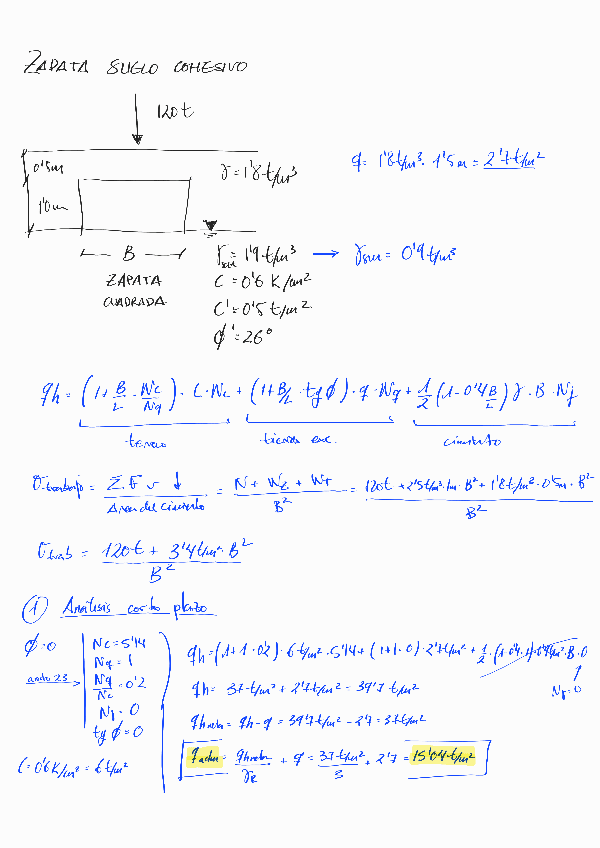 ZAPATA SUELO COHESIVO
120t
0'5m
γ = 1'8 t/m³
q = 1'8 t/m³ · 1'5m = 2'7 t/m²
1'0m
B
γsat = 1'9 t/m³ → γsum = 0'9 t/m³
ZAPATA
CUADRADA
C = 0'6 K/cm²
C' = 0'5 t/m²
ϕ' = 26°
qh = (1 + B/L · Nc/Nq) · C · Nc + (1 + B/L · tg ϕ) · q · Nq + 1/2 (1 - 0'4 B/L) γ · B · Nγ
terreno
tierras enc.
cimiento
σtrabajo = Σ F v ↓ / Área del cimiento = N + Wz + WT / B² = 120t + 2'5 t/m³ · 1m · B² + 1'8 t/m³ · 0'5m · B² / B²
σtrab = 120t + 3'4 t/m² B² / B²
① Análisis corto plazo
ϕ = 0
Nc = 5'14
Nq = 1
Nq/Nc = 0'2
Nγ = 0
tg ϕ = 0
C = 0'6 K/cm² = 6 t/m²
qh = (1 + 1 · 0'2) · 6 t/m² · 5'14 + (1 + 1 · 0) · 2'7 t/m² + 1/2 · (1 - 0'4 · 1) · 0'9 t/m³ · B · 0
Nγ = 0
qh = 37 t/m² + 2'7 t/m² = 39'7 t/m²
qhneta = qh - q = 39'7 t/m² - 2'7 = 37 t/m²
qadm = qhneta / γR + q = 37 t/m² / 3 + 2'7 = 15'04 t/m²